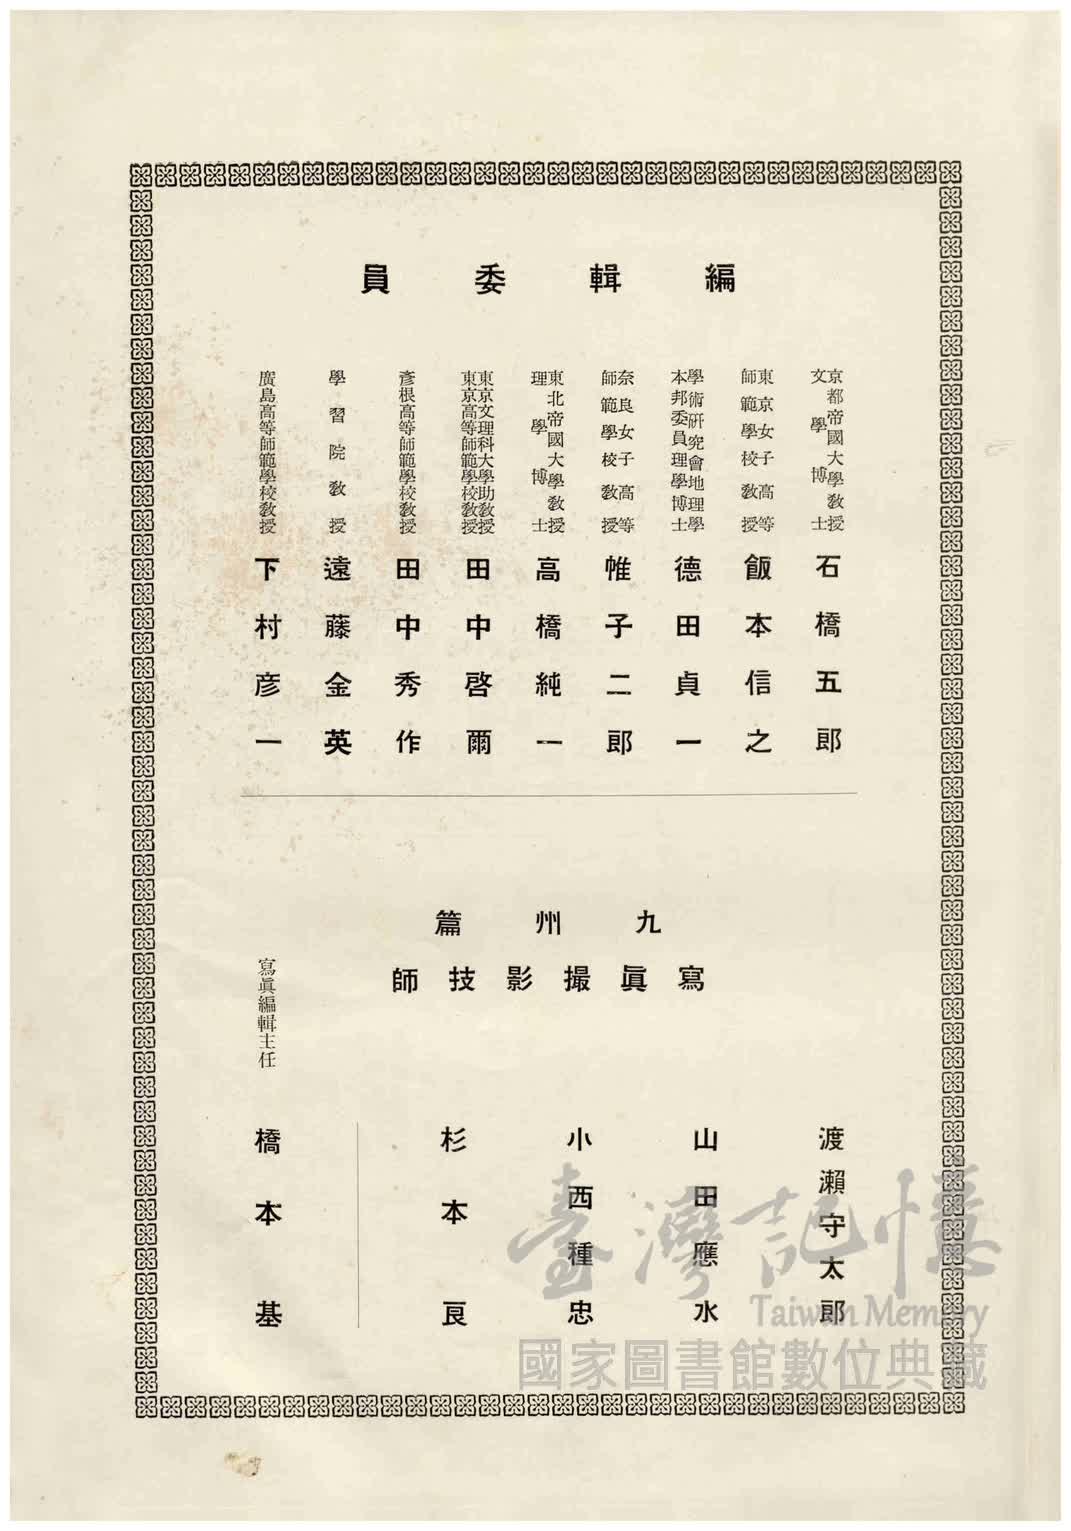 編輯委員
京都帝國大學教授
文學博士
石橋五郎
東京女子高等
師範學校教授
飯本信之
學術研究會地理學
本邦委員理學博士
德田貞一
奈良女子高等
師範學校教授
帷子二郎
東北帝國大學教授
理學博士
高橋純一
東京文理科大學助教授
東京高等師範學校教授
田中啓爾
彥根高等師範學校教授
田中秀作
學習院教授
遠藤金英
廣島高等師範學校教授
下村彦一
九州篇
寫眞撮影技師
渡瀨守太郎
山田應水
小西種忠
杉本良
寫眞編輯主任
橋本基
臺灣記憶
Taiwan Memory
國家圖書館數位典藏